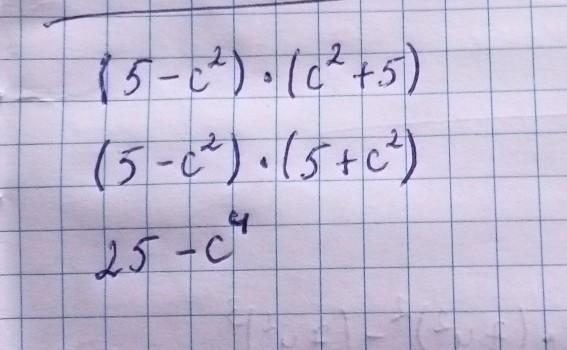 (5-c²)·(c²+5)
(5-c²)·(5+c²)
25-c⁴